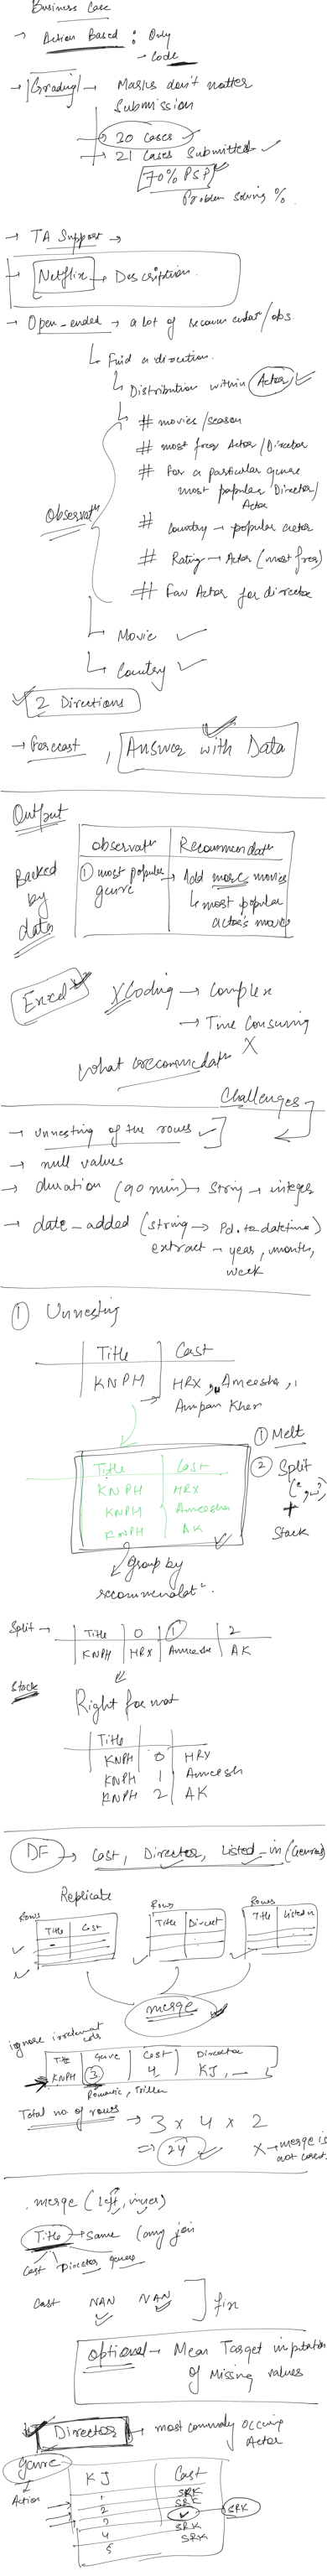 Business Case
→ Action Based : Only
- Code
→ Grading → Marks don't matter
Submission
→ 20 Cases
→ 21 Cases Submitted
70% PSP
Problem Solving %
→ TA Support →
→ Netflix → Description.
→ Open-ended → a lot of recommendatⁿ/obs.
Find a direction.
Distribution within Actor
# movies/season
# most freq Actor/Director
# For a particular genre
most popular Director/
Actor
Observatⁿ
# Country → popular actor
# Rating → Actor (most freq)
# Fav Actor for director
Movie
Country
2 Directions
→ Forecast , Answer with Data
Output
Backed by data
observatⁿ | Recommendatⁿ
① most popular genre → Add more movies
most popular
actor's movies
Excel X Coding → Complex
→ Time Consuming
X
What recommendatⁿ
Challenges
→ unnesting of the rows
→ null values
→ duration (90 min) → string → integer
→ date_added (string → Pd.to datetime)
extract → year, month,
week
① Unnesting
Title | Cast
KNPH | HRX, Ameesha,
Anupam Kher
① Melt
Title | Cast
② Split
KNPH | HRX
(",")
KNPH | Ameesha
+
KNPH | AK
Stack
group by
recommendatⁿ.
Split → Title | 0 | 1 | 2
KNPH | HRX | Ameesha | AK
Stack
Right format
Title
KNPH 0 HRX
KNPH 1 Ameesh
KNPH 2 AK
DF → Cast, Director, Listed_in (Genres)
Replicate
Rows Rows Rows
Title | Cast Title | Direct Title | Listed in
merge
ignore irrelevant cols
Title | Genre | Cast | Director
KNPH | 3 | 4 | KJ, _
Romantic, Thriller
Total no of rows → 3 x 4 x 2
⇒ 24 X → merge is
not correct.
. merge (left, inner)
Title → Same (any join
Cast Director genre
Cast NAN NAN ] fix
optional → Mean Target imputation
of Missing values
Director → most commonly occuring
Actor
genre
Action
KJ | Cast
1 SRK
2 SRK
3 ✓ SRK
4 SRK
5 SRK